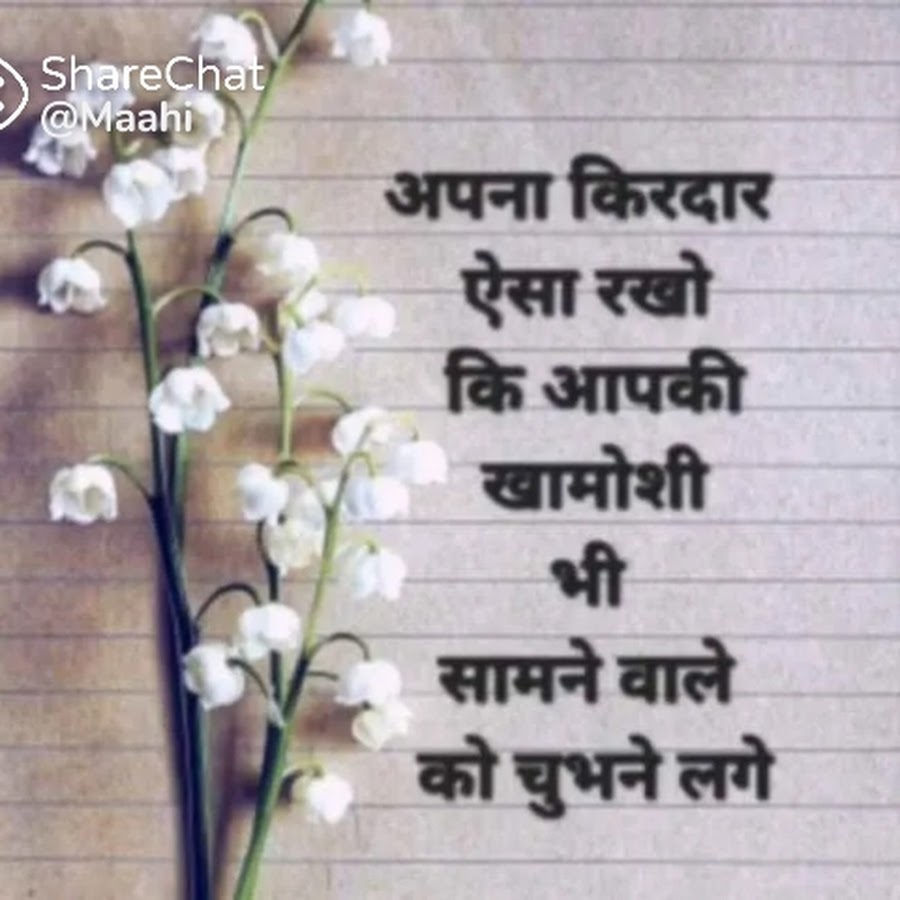 ShareChat
@Maahi
अपना किरदार
ऐसा रखो
कि आपकी
खामोशी
भी
सामने वाले
को चुभने लगे